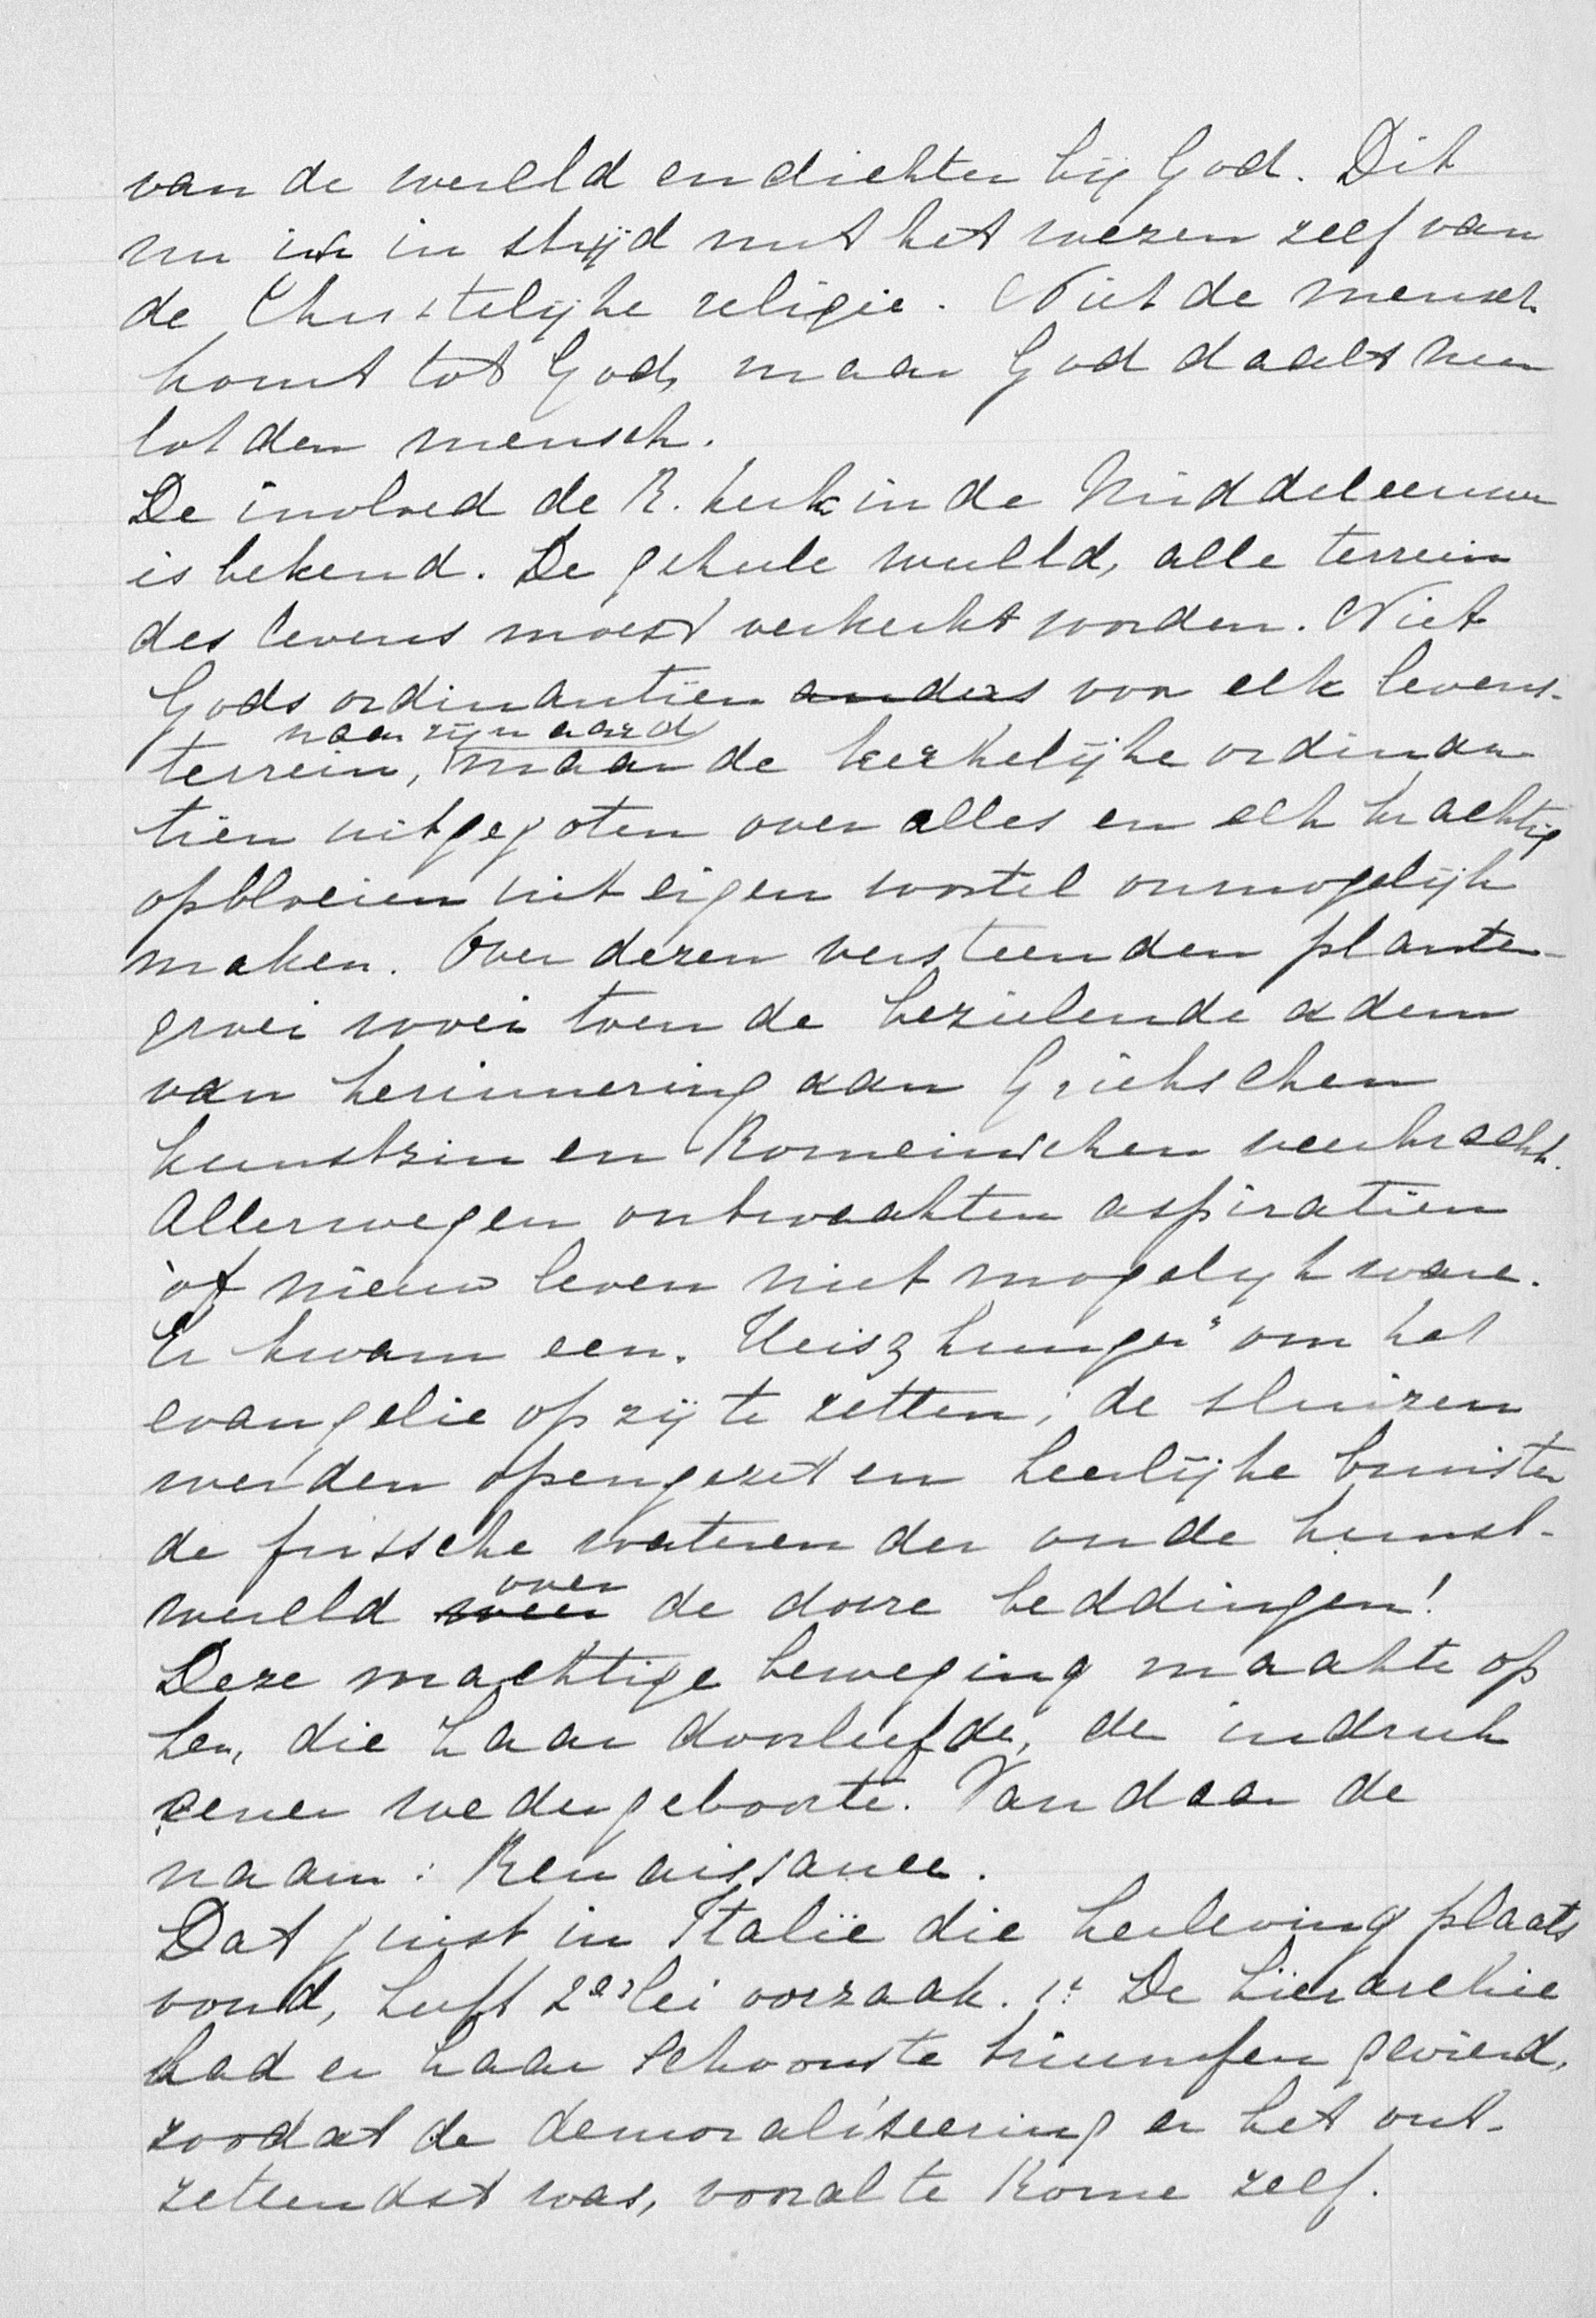 van de wereld en dichter bij God. Dit
nu is in strijd met het wezen zelf van
de Christelijke religie. Niet de mensch
komt tot God, maar God daalt neer
tot den mensch.
De invloed de R. kerk in de Middeleeuwen
is bekend. De geheele wereld, alle terrein
des levens moest verkerkt worden. Niet
Gods ordinantiën anders voor elk levens-
naar zijn aard
terrein, maar de kerkelijke ordinan-
tiën uitgegoten over alles en elk krachtig
opbloeien uit eigen wortel onmogelijk
maken. Over dezen versteenden planten-
groei woei toen de bezielende adem
van herinnering aan Griekschen
kunstzin en Romeinschen veerkracht.
Allerwegen ontwaakten aspiratiën
òf nieuw leven niet mogelijk ware.
Er kwam een „Heiszhunger" om het
evangelie op zij te zetten; de sluizen
werden opengezet en heerlijke bruisten
de frissche wateren der oude kunst-
over
wereld weer de dorre beddingen!
Deze machtige beweging maakte op
hen, die haar doorleefde, de indruk
eener wedergeboorte. Vandaar de
naam: Renaissance.
Dat juist in Italië die herleving plaats
vond, heeft 2erlei oorzaak. 1e De hierarchie
had er haar schoonste triumfen gevierd,
zoodat de demoraliseering er het ont-
zettendst was, vooral te Rome zelf.